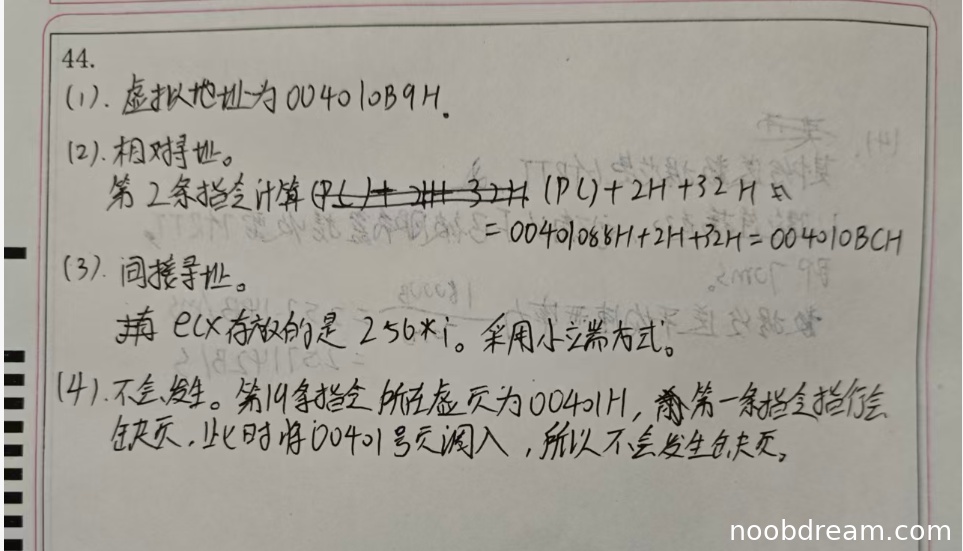 44.
(1). 虚拟地址为 004010B9H.
(2). 相对寻址。
第2条指令计算 (PC)+2H+32H
= 00401088H+2H+32H = 004010BCH
(3). 间接寻址。
ecx存放的是 256*i。采用小端方式。
(4). 不会发生。第19条指令所在虚页为00401H, 第一条指令指行会
缺页, 此时将00401号页调入, 所以不会发生缺页。
noobdream.com